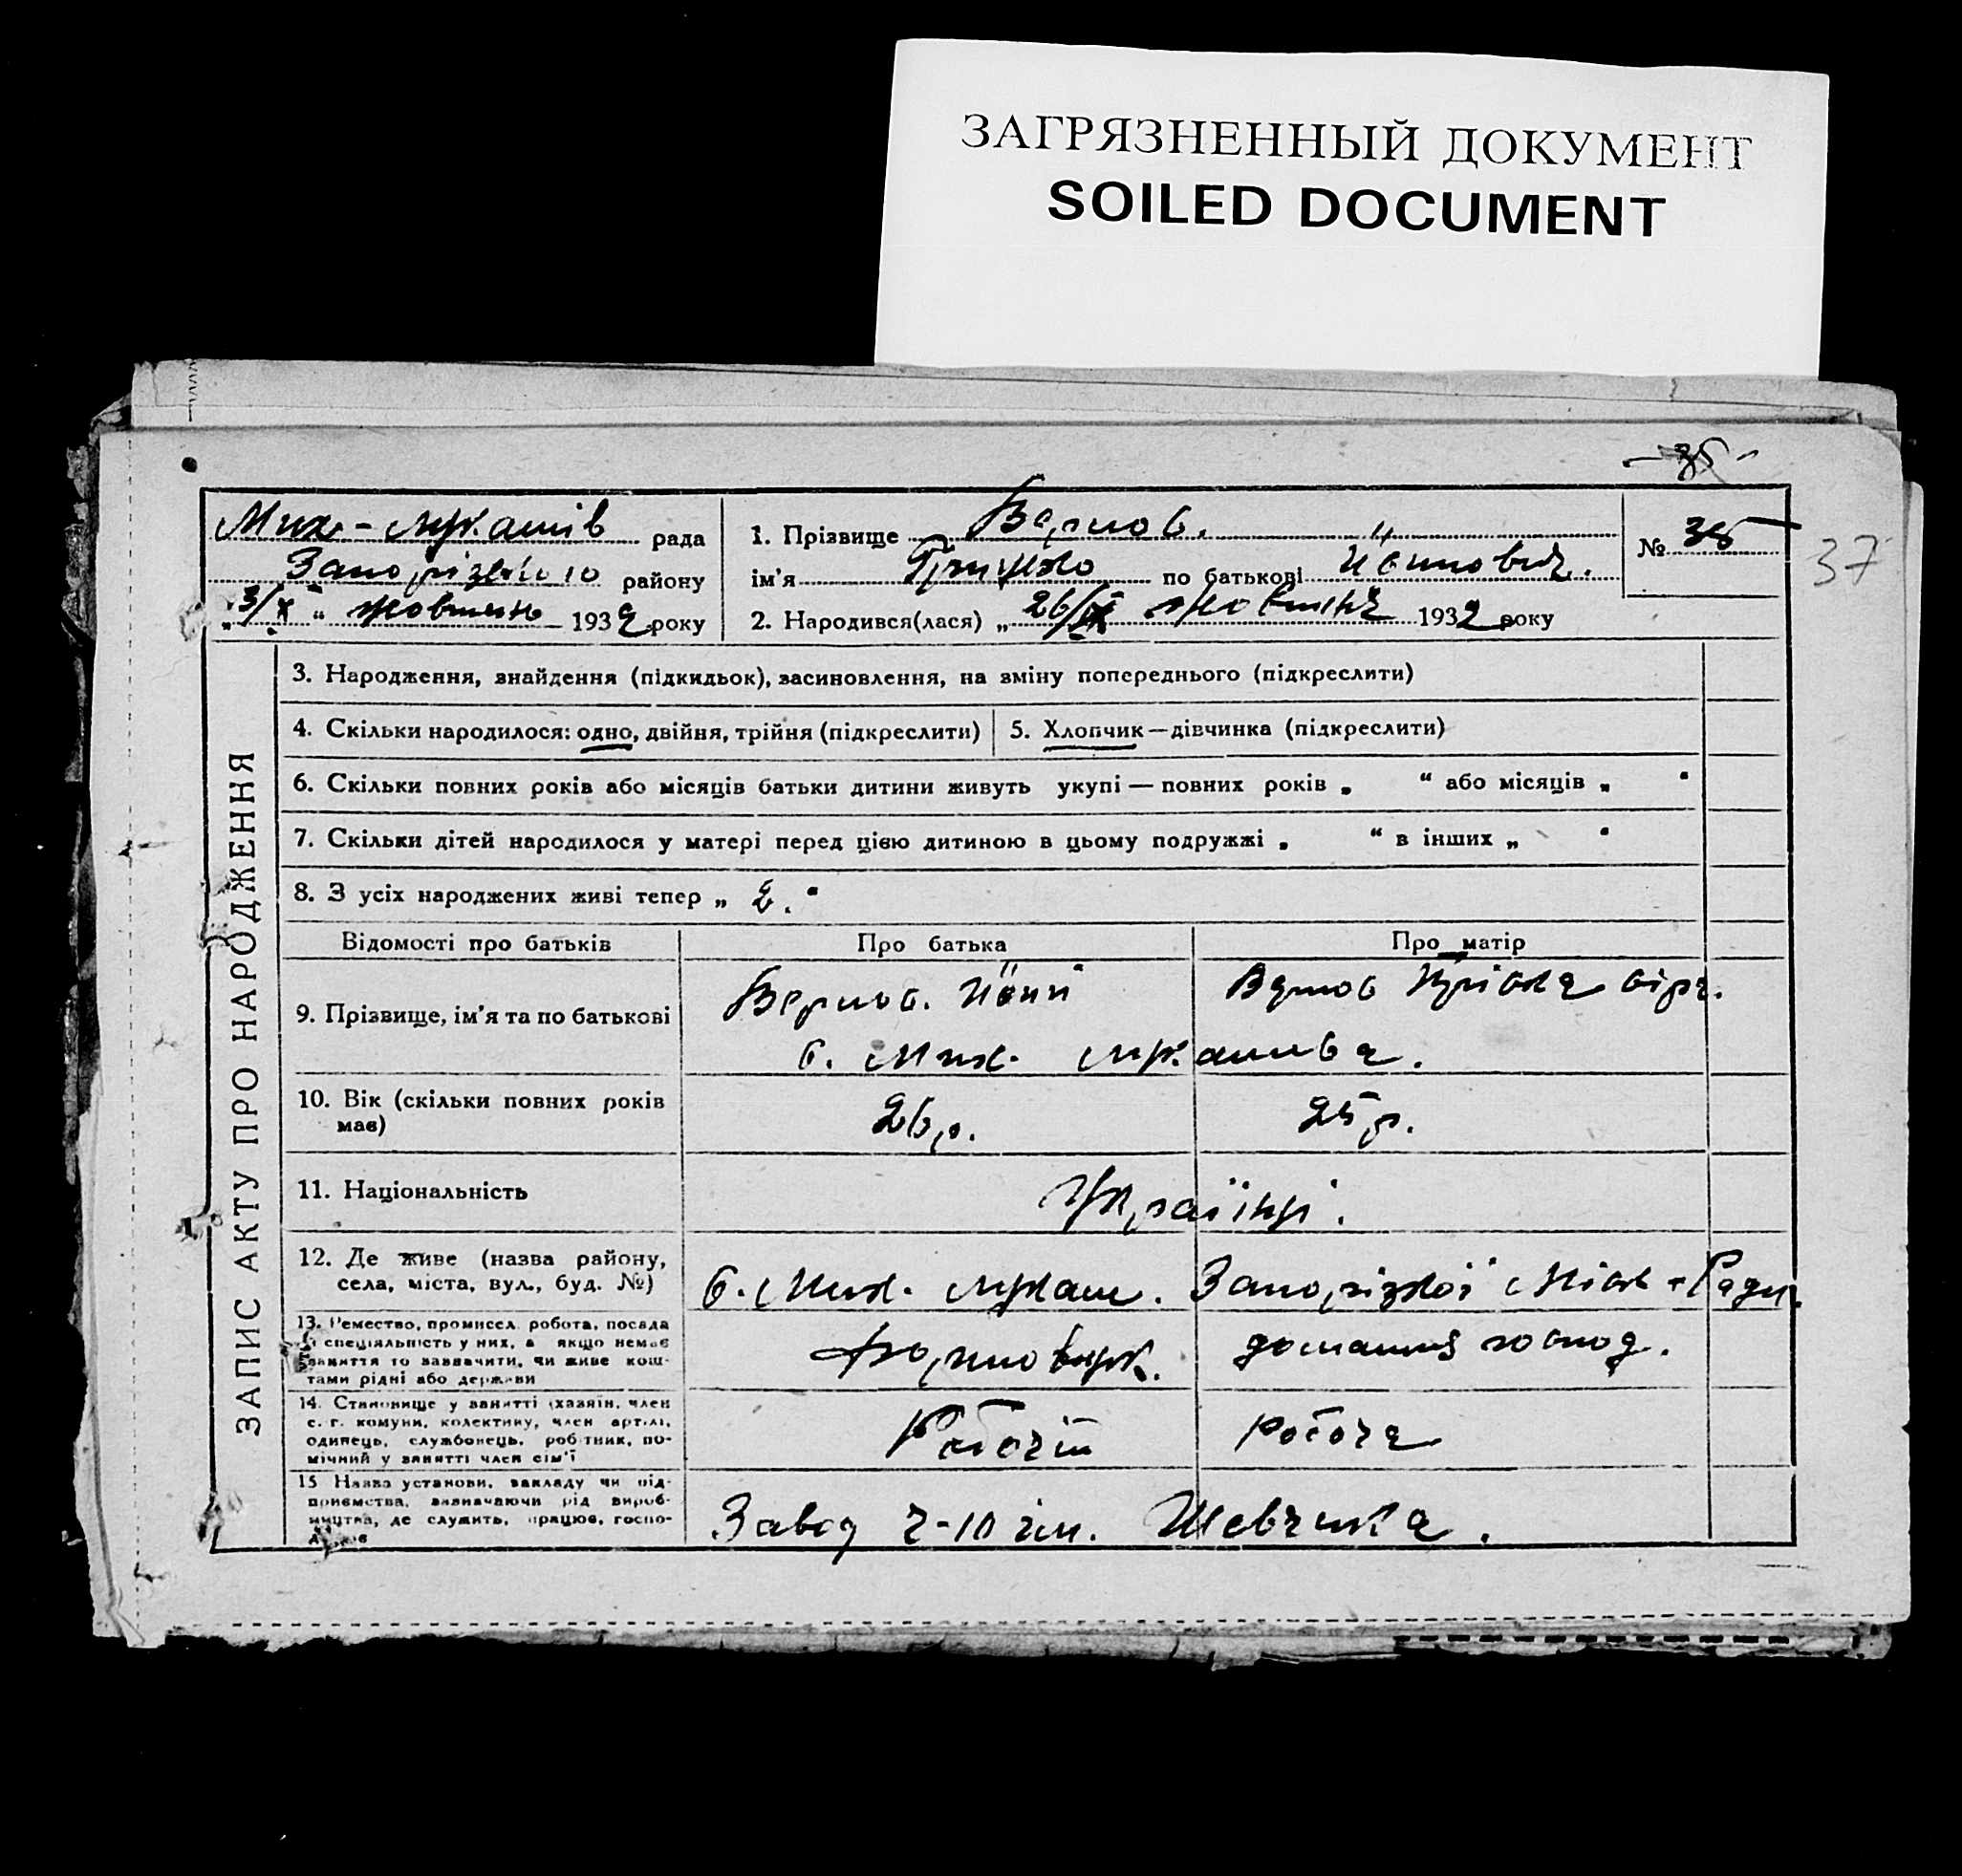 ЗАГРЯЗНЕННЫЙ ДОКУМЕНТ
SOILED DOCUMENT
Мих-Лукашів рада
Запорізького району
"3/X" Жовтень 1932 року
1. Прізвище
ім'я по батькові
2. Народився(лася) „26/IX Жовтня 1932 року
№ 38
37
ЗАПИС АКТУ ПРО НАРОДЖЕННЯ
3. Народження, знайдення (підкидьок), засиновлення, на зміну попереднього (підкреслити)
4. Скільки народилося: одно, двійня, трійня (підкреслити) 5. Хлопчик—дівчинка (підкреслити)
6. Скільки повних років або місяців батьки дитини живуть укупі — повних років „ “ або місяців „ “
7. Скільки дітей народилося у матері перед цією дитиною в цьому подружжі „ “ в інших „ “
8. З усіх народжених живі тепер „ 2. “
Відомості про батьків Про батька Про матір
9. Прізвище, ім'я та по батькові
с. Мих. Лукашева.
10. Вік (скільки повних років має) 26 р. 25 р.
11. Національність Українці.
12. Де живе (назва району, села, міста, вул., буд. №) с. Мих. Лукаш. Запорізкої Міськ-Ради.
13. Ремество, промисел, робота, посада і спеціяльність у них, а якщо немає заняття то зазначити, чи живе коштами рідні або держави
домашнє господ.
14. Становище у занятті (хазяїн, член с. г. комуни, колективу, член артілі, одинець, службонець, робітник, помічний у занятті член сім'ї Робочій Робоча
15 Назва установи, закладу чи підприємства, зазначаючи рід виробництва, де служить, працює, господарює
Завод ч-10 ім. Шевченка.